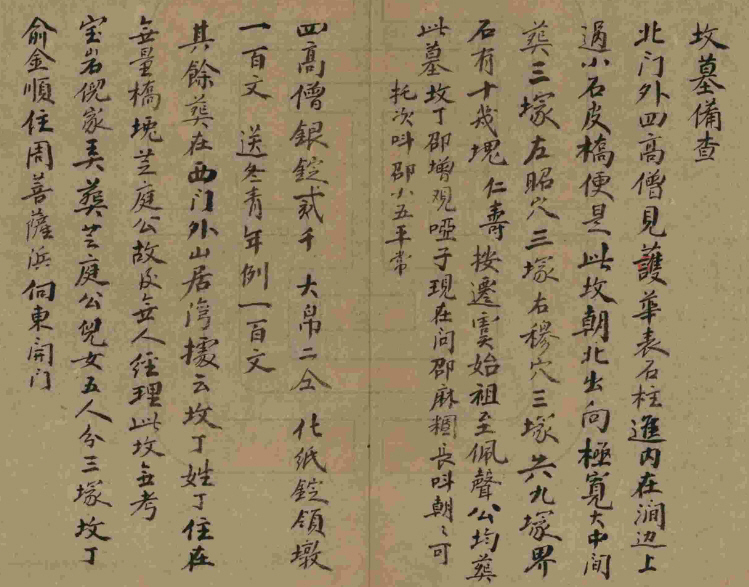 坟墓備查
北门外四高僧見護華表石柱進內在澗边上
過小石皮橋便是此坟朝北出向極寬大中间
葬三塚左昭穴三塚右穆穴三塚共九塚界
石有十幾塊仁壽按遷虞始祖至佩聲公均葬
此墓坟丁邵增观哑子現在问邵麻糰長呌朝〻可
托次呌邵小五平常
四高僧銀錠貳千大帛二仝化紙錠領墩
一百文送冬青年例一百文
其餘葬在西门外山居湾據云坟丁姓丁住在
無量橋塊芝庭公故後無人經理此坟無考
宝岩倪家美葬芝庭公兒女五人分三塚坟丁
俞金順住周菩薩浜向東開门